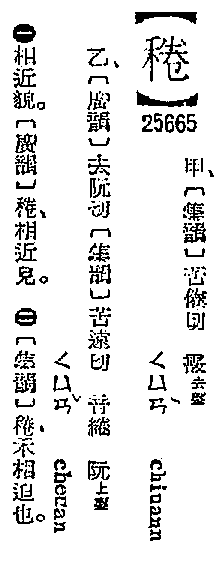 【䅚】
25665
甲、〔集韻〕苦倦切 霰去聲 ㄑㄩㄢˋ chiuann
乙、〔廣韻〕去阮切〔集韻〕苦遠切 音綣 阮上聲 ㄑㄩㄢˇ cheuan
㊀相近貌。〔廣韻〕䅚、相近皃。㊁〔集韻〕䅚、禾相迫也。